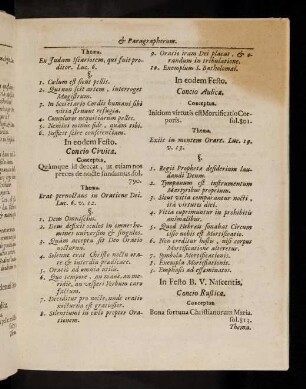 & Paragraphorum.
Thema.
Ex Judam Iscariotem, qui fuit proditor. Luc. 6.
§.
1. Cælum est sicut pellis.
3. In secretario Cordis humani sibi vita
4. Conculcat nequitiarum pelles.
6. Sufficit scire conscientiam.
In eodem Festo.
Concio Civica.
Conceptus.
Quámque id deceat, ut etiam nos
preces de nocte fundamus. fol.
790.
Thema.
Erat pernoctans in Oratione Dei.
Luc. 6. v. 12.
§.
1. Dem Omnibus.
2. Dem deficit
minibus universis & singulis.
3. Quàm accepta sit Deo Oratio
nocturna.
4. Solenne erat Christo nocte orare
& interdiu prædicare.
5. Oratio ad omnia utilis.
6. Quo tempore, an mane, an meridie, an vesperi Verbum caro
factum.
7. Deciditur pro nocte, unde oratio
nocturna est gratiosa.
8. Silentium in cælo propter Orationem.
9. Oratio iram Dei placat, & orandum in tribulatione.
10. Exemplum S. Bartholomæi.
In eodem Festo.
Concio Aulica.
Conceptus.
Initium virtutis est Mortificatio Corporis.
fol. 801.
Thema.
Exiit in montem Orare. Luc.
v. 12.
§.
1. Regii Prophetæ desiderium laudandi Deum.
2. Tympanum est instrumentum
Martyribus proprium.
3. Sicut vitia comparantur nocti,
ita virtutes diei.
4. Vitia exprimuntur in prohibitis
animalibus.
5. Quod Hebræis sonabat Circumcisio
nobis est Mortificatio.
6. Non creditur Iusto, nisi corpus
Mortificatione alteretur.
7. Symbola Mortificationis.
8. Exempla Mortificationis.
9. Emphasis ad
In Festo B. V. Nascentis.
Concio Rustica.
Conceptus.
Bona fortuna Christianorum Maria.
fol. 813.
Thema.